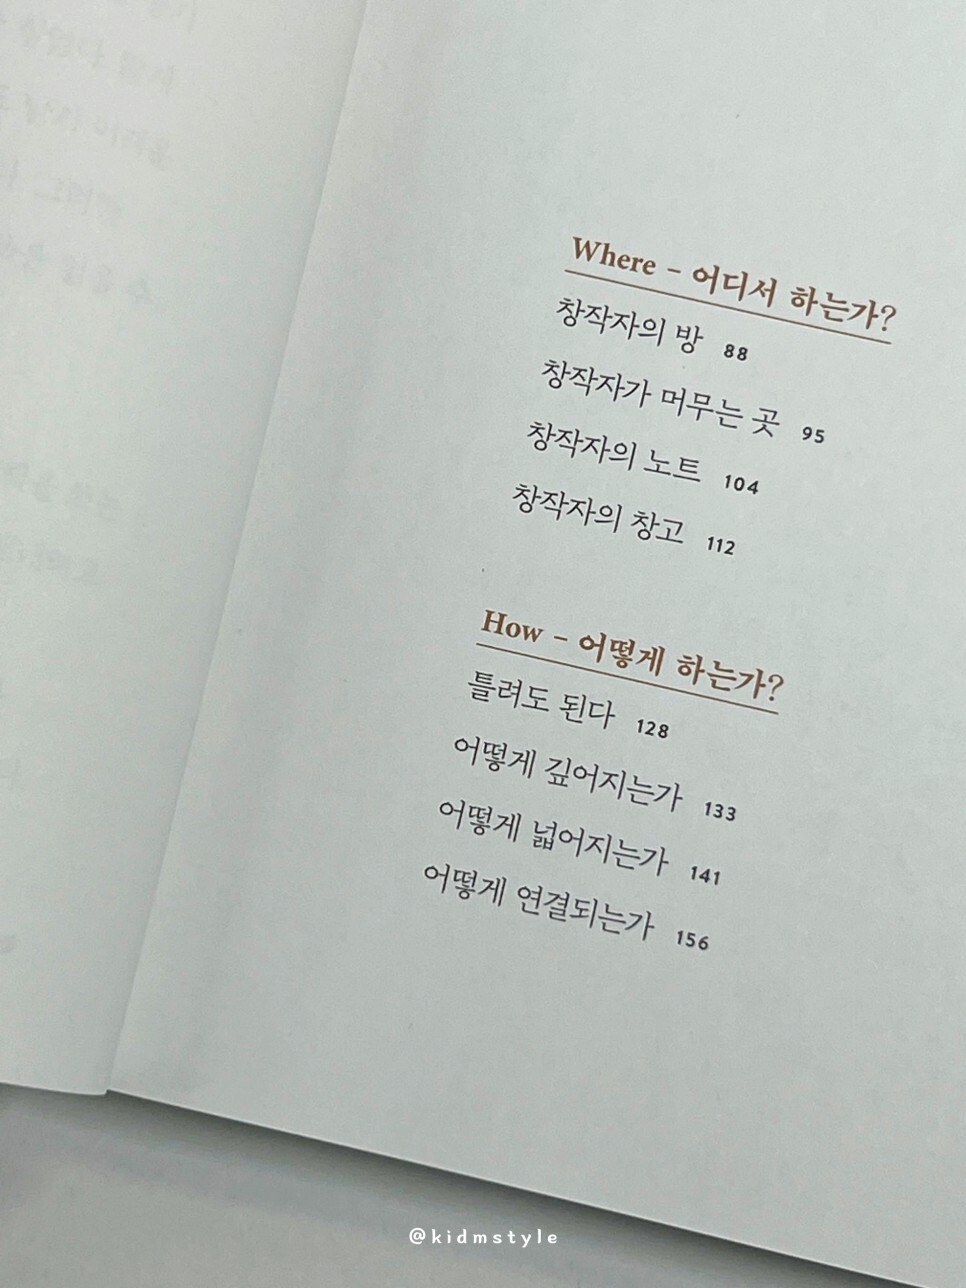 Where - 어디서 하는가?
창작자의 방 88
창작자가 머무는 곳 95
창작자의 노트 104
창작자의 창고 112
How - 어떻게 하는가?
틀려도 된다 128
어떻게 깊어지는가 133
어떻게 넓어지는가 141
어떻게 연결되는가 156
@kidmstyle